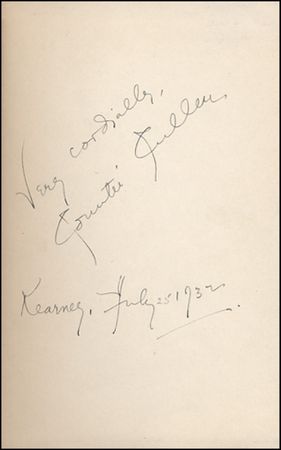 Very cordially,
Countée Cullen
Kearney, July 25 1932